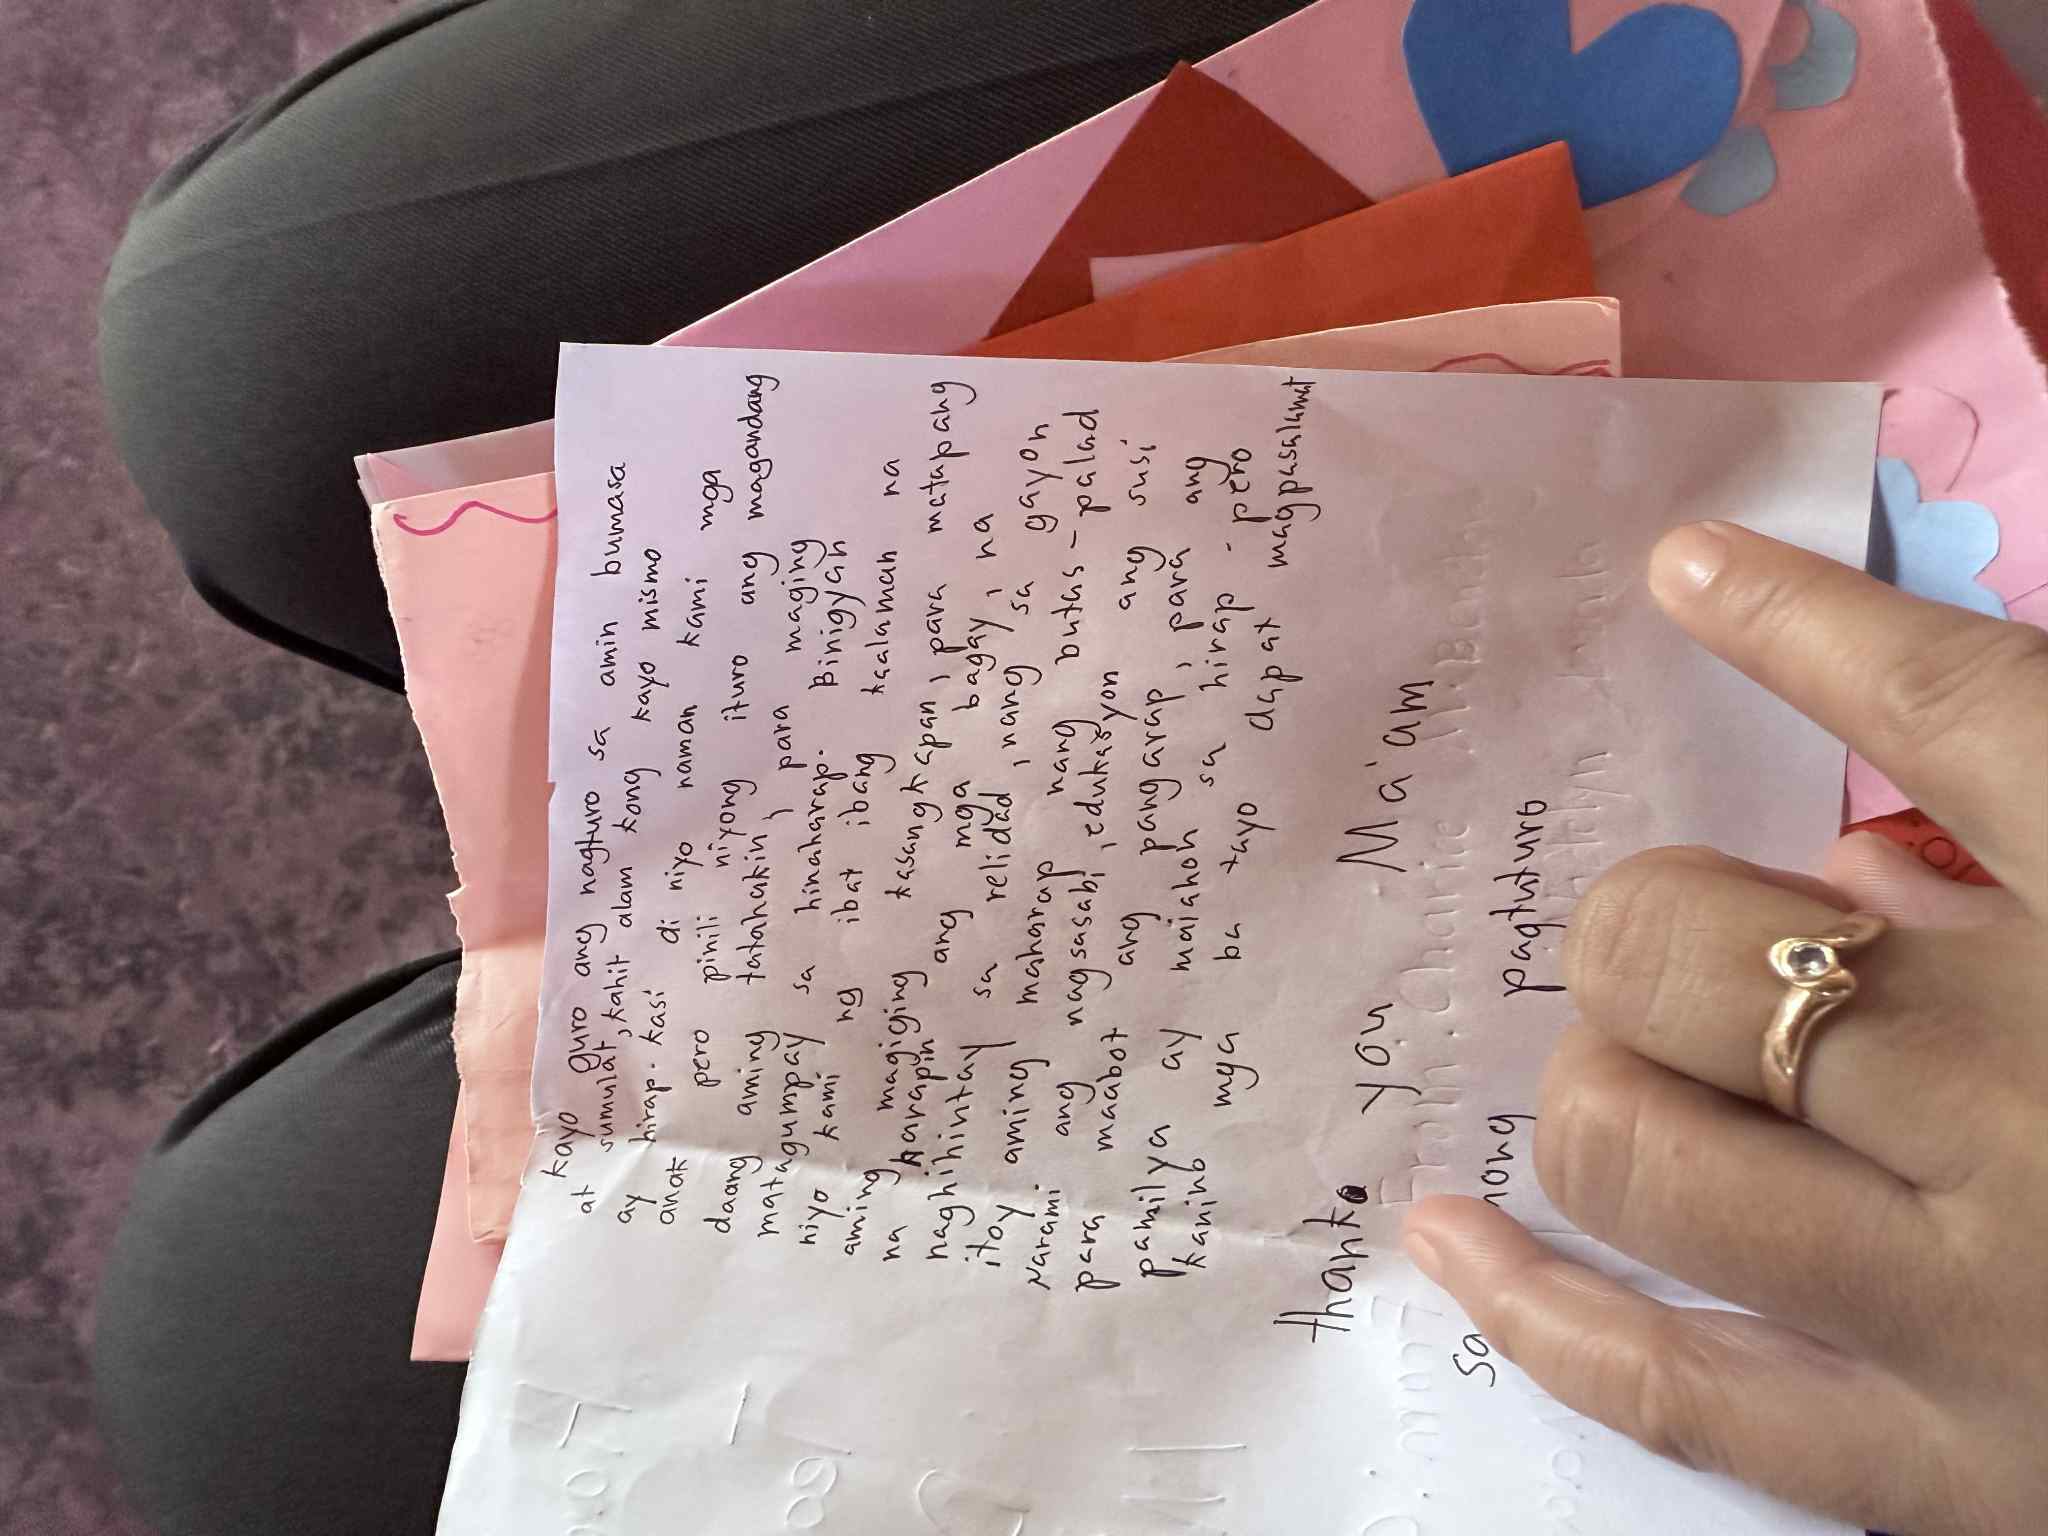 kayo guro ang nagturo sa amin bumasa
at sumulat, kahit alam kong kayo mismo
ay hirap. kasi di niyo naman kami
anak pero pinili niyong ituro ang mga
daang aming tatahakin, para maging magandang
matagumpay sa hinaharap. Binigyan
niyo kami ng ibat ibang kaalaman na
aming magiging kasangkapan, para matapang
na harapin ang mga bagay, na
naghihintay sa relidad, nang sa gayon
itoy aming maharap nang butas-palad
Narami ang nagsasabi, edukasyon ang susi
para maabot ang pangarap, para ang
pamilya ay maiahon sa hirap. pero
kanino mga ba tayo dapat magpasalamat
thank you Ma'am
sa pagturo
From: Charie